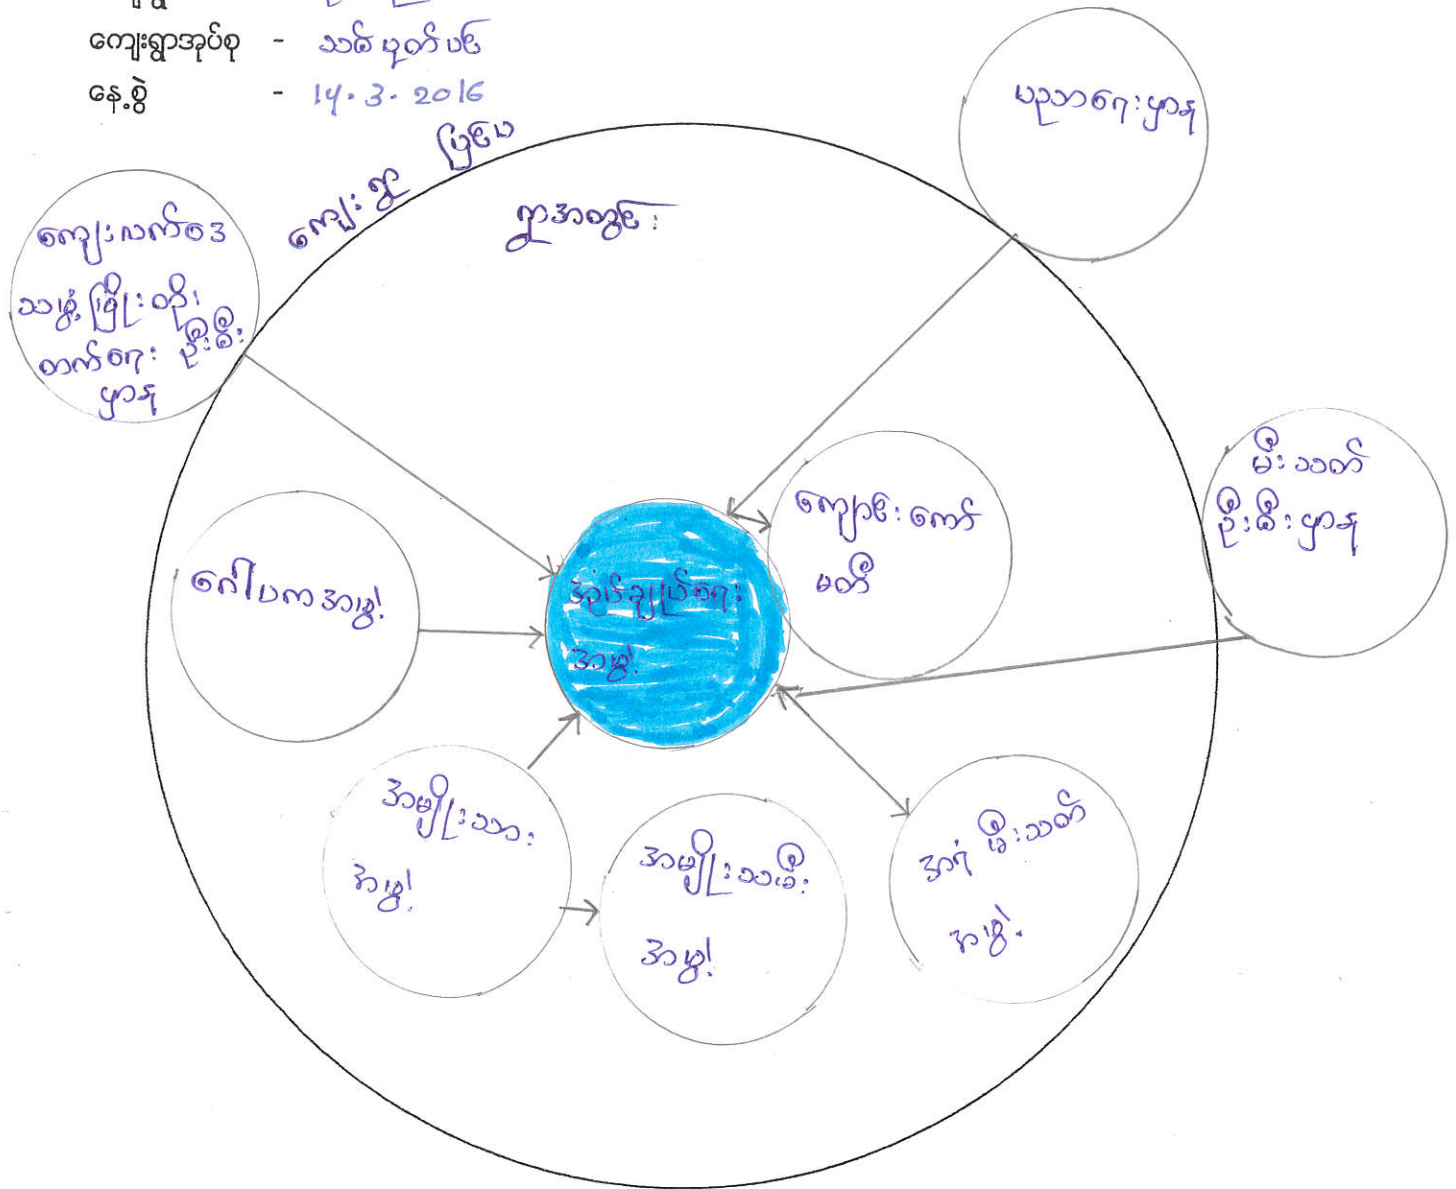 ကျေးရွာအုပ်စု - သစ်ပုတ်ပင်
နေ့စွဲ - 14.3.2016
ကျေးရွာ ပြင်ပ
ရွာအတွင်း
ပညာရေးဌာန
ကျေးလက်ဒေ
သဖွံ့ဖြိုးတိုး
တက်ရေး ဦးစီး
ဌာန
မီးသတ်
ဦးစီးဌာန
ကျောင်းကော်
မတီ
ဂေါပကအဖွဲ့
အုပ်ချုပ်ရေး
အဖွဲ့
အမျိုးသား
အဖွဲ့
အမျိုးသမီး
အဖွဲ့
အရံ မီးသတ်
အဖွဲ့